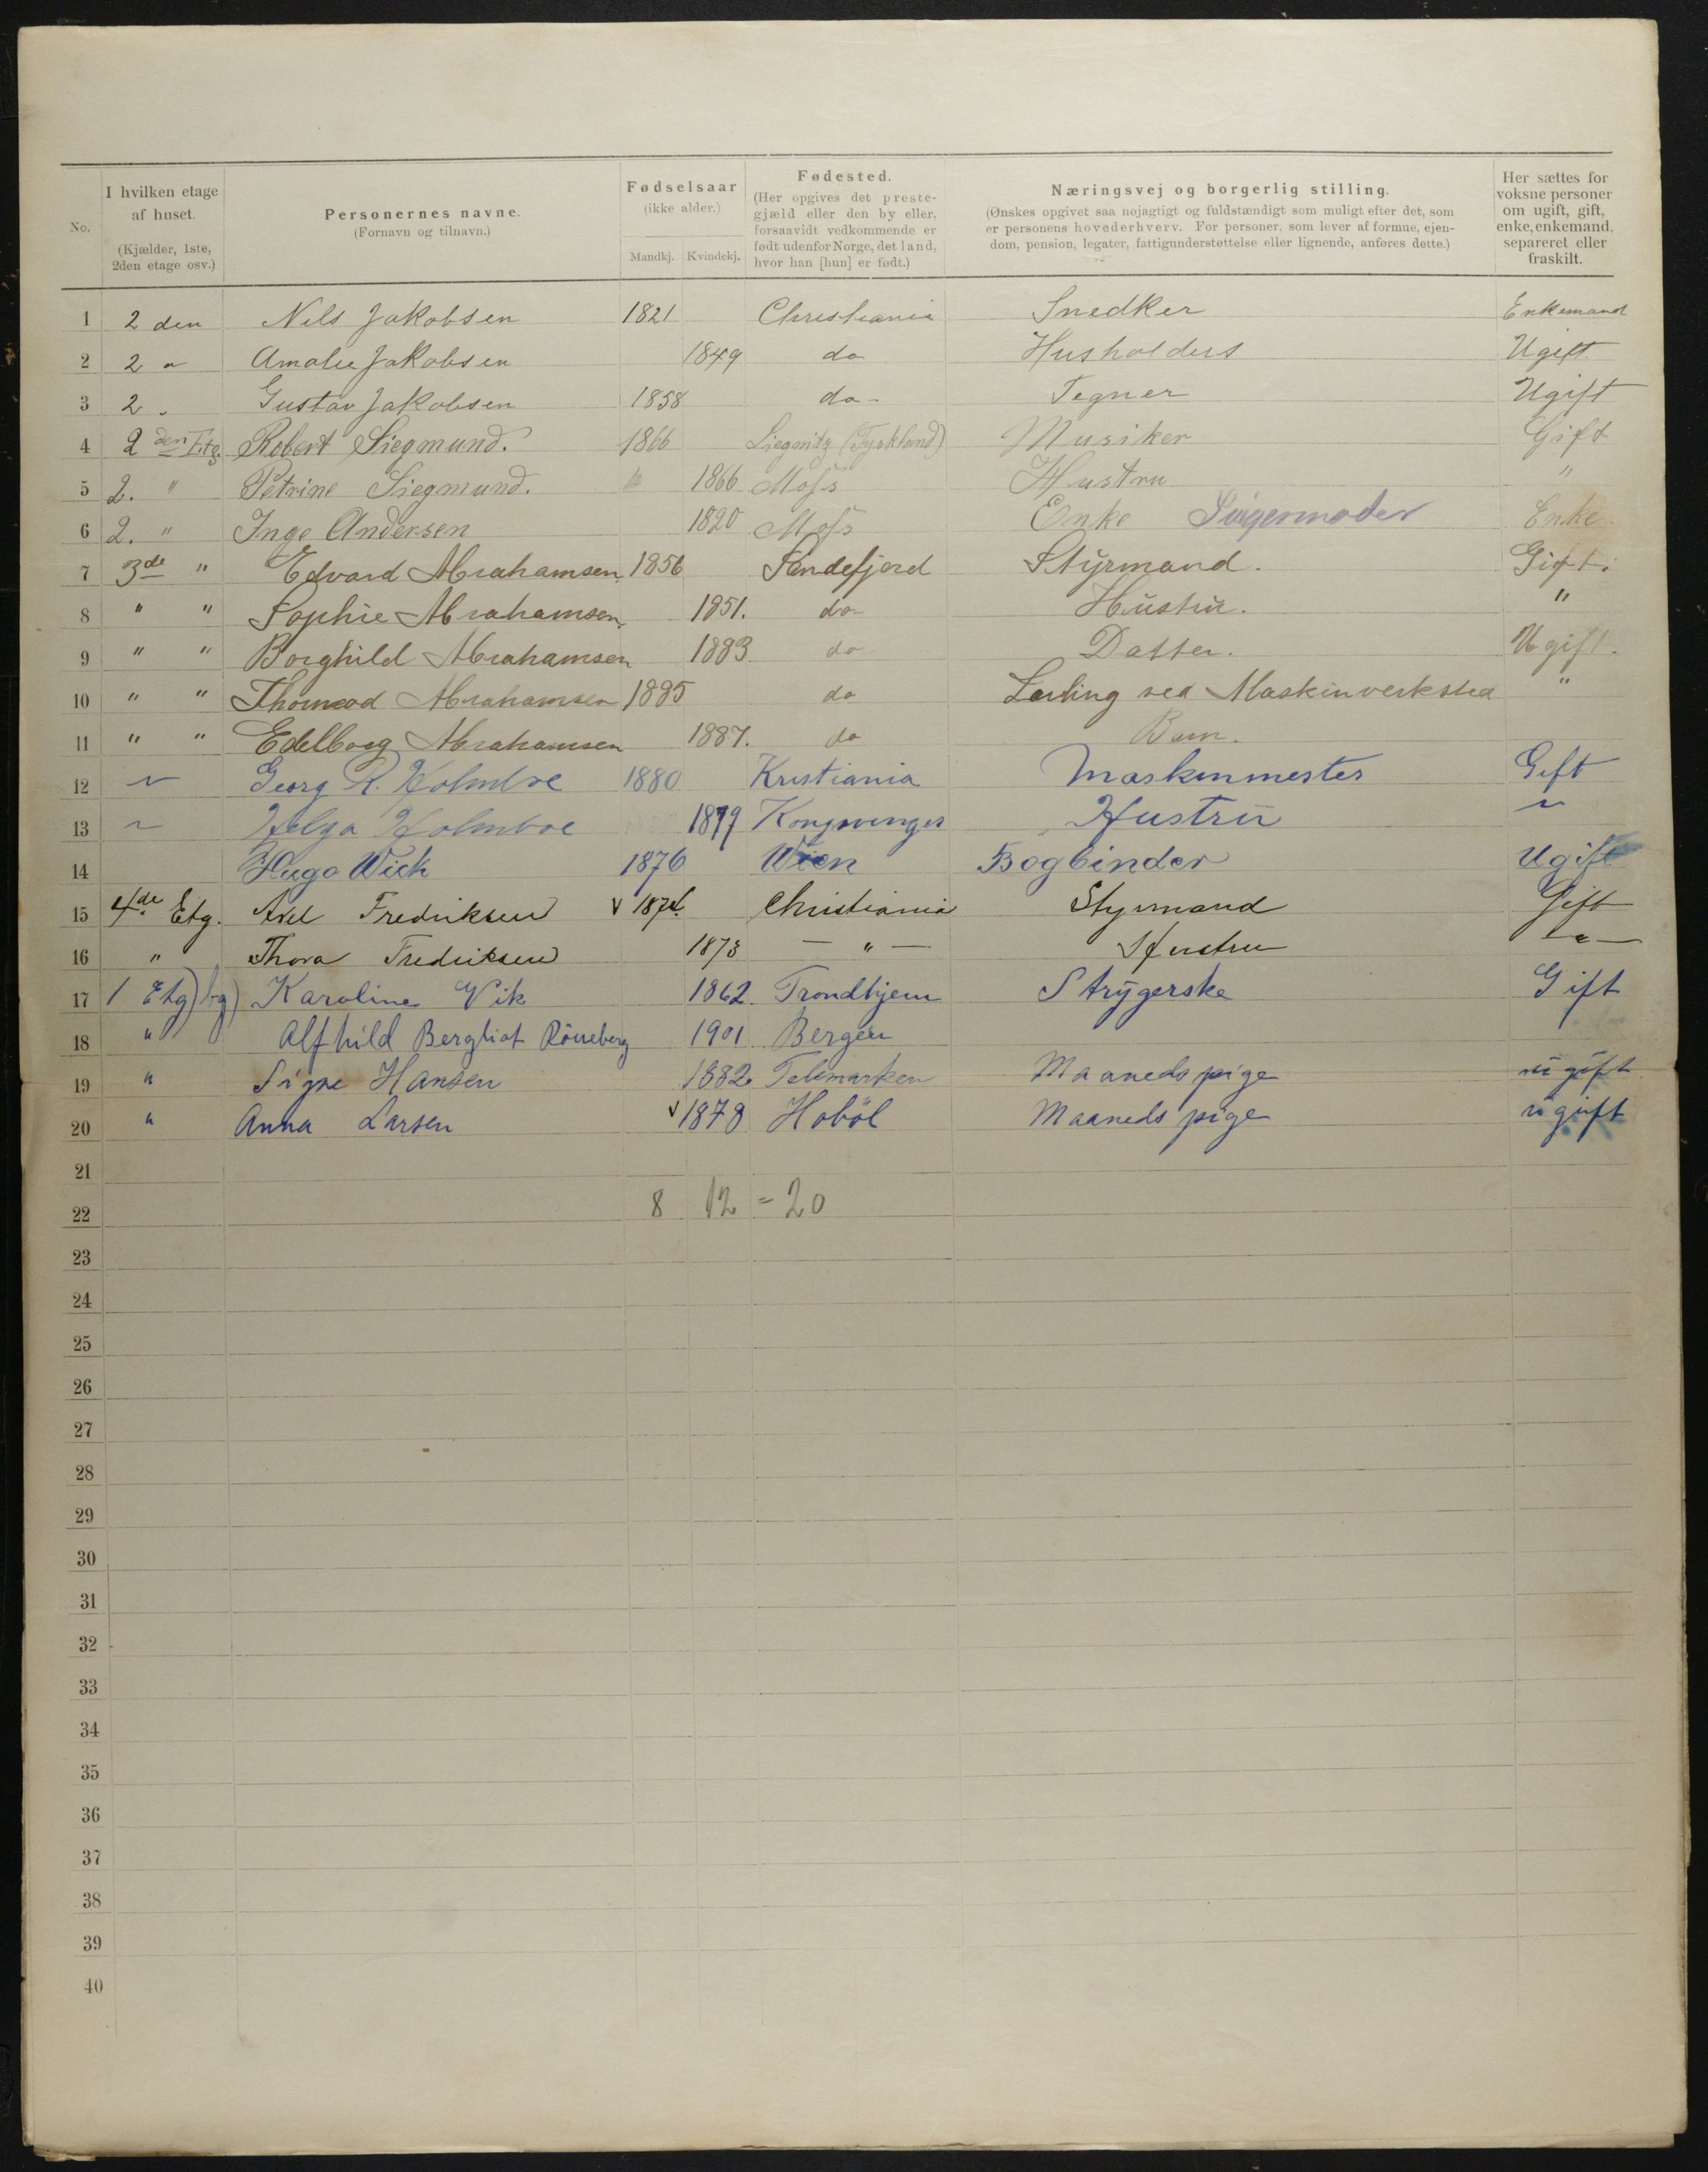 No.
I hvilken etage af huset.
(Kjælder, 1ste, 2den etage osv.)
Personernes navne.
(Fornavn og tilnavn.)
Fødselsaar
(ikke alder.)
Mandkj. Kvindekj.
Fødested.
(Her opgives det prestegjæld eller den by eller, forsaavidt vedkommende er født udenfor Norge, det land, hvor han [hun] er født.)
Næringsvej og borgerlig stilling.
(Ønskes opgivet saa nøjagtigt og fuldstændigt som muligt efter det, som er personens hovederhverv. For personer, som lever af formue, ejendom, pension, legater, fattigunderstøttelse eller lignende, anføres dette.)
Her sættes for voksne personer om ugift, gift, enke, enkemand, separeret eller fraskilt.
1 2 den Nils Jakobsen 1821 Christiania Snedker Enkemand
2 2 " Amalie Jakobsen 1849 do Husholders Ugift
3 2 " Gustav Jakobsen 1858 do - Tegner Ugift
4 2 den Etg. Robert Siegmund. 1866 Liegnitz (Tyskland) Musiker Gift
5 2. " Petrine Siegmund. 1866 Moss Hustru "
6 2. " Inge Andersen 1820 Moss Enke Svigermoder Enke.
7 3de " Edvard Abrahamsen 1856 Sandefjord Styrmand. Gift.
8 " " Sophie Abrahamsen. 1851. do Hustru. "
9 " " Borghild Abrahamsen 1883 do Datter. Ugift.
10 " " Abrahamsen 1885 do Lærling ved Maskinverksted "
11 " " Edelborg Abrahamsen 1887. do Barn.
12 " Georg R. Holmboe 1880 Kristiania Maskinmester Gift
13 " Helga Holmboe 1879 Kongsvinger Hustru "
14 Hugo Wick 1876 Wien Bogbinder Ugift
15 4de Etg. Axel Fredriksen 1874 Christiania Styrmand Gift
16 " Thora Fredriksen 1873 — " — Hustru — " —
17 1 Etg) bg) Karoline Vik 1862. Trondhjem Strygerske Gift
18 " Alfhild Bergliot Röneberg 1901 Bergen
19 " Signe Hansen 1882. Telemarken Maaneds pige ugift
20 " Anna Larsen 1878 Haböl Maaneds pige ugift
21
22 8 12 = 20
23
24
25
26
27
28
29
30
31
32
33
34
35
36
37
38
39
40